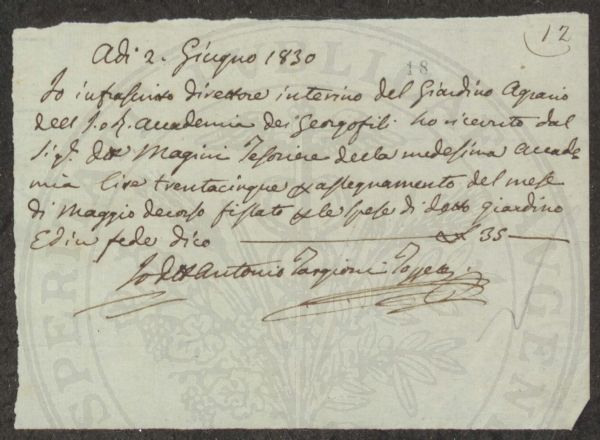 12
Adi 2. Giugno 1830
18
Io infrascritto direttore interino del Giardino Agrario
dell I. e R. Accademia dei Georgofili ho ricevuto dal
Sig.r dott Magini Tesoriere della medesima Accade=
mia lire trentacinque p assegnamento del mese
di Maggio decorso fissato p le spese di detto giardino
Ed in fede dico 35
Io dott Antonio Targioni Tozzetti